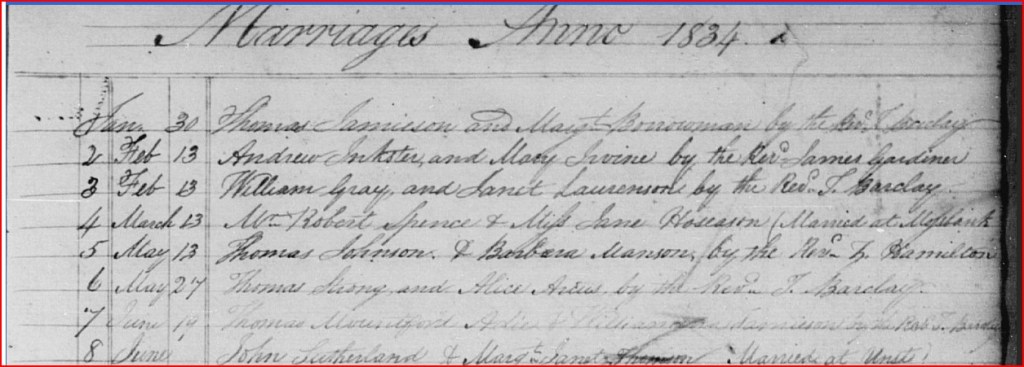 Marriages Anno 1834.
Jan. 30 Thomas Jamieson and Margt. Borrowman by the Revd. T. Barclay
2 Feb 13 Andrew Inkster, and Mary Irvine by the Revd. James Gardiner
3 Feb 13 William Gray, and Janet Laurenson by the Revd. T. Barclay.
4 March 13 Mr. Robert Spence & Miss Jane Hoseason (Married at
5 May 13 Thomas Johnson. & Barbara Manson. by the Revd. Hamilton
6 May 27 Thomas and Alice by the Revd. T. Barclay.
7 June 19 Thomas Mountford & Jamieson by the Revd. T. Barclay
8 June John Sutherland & Margt. Janet Thomson Married at Unst